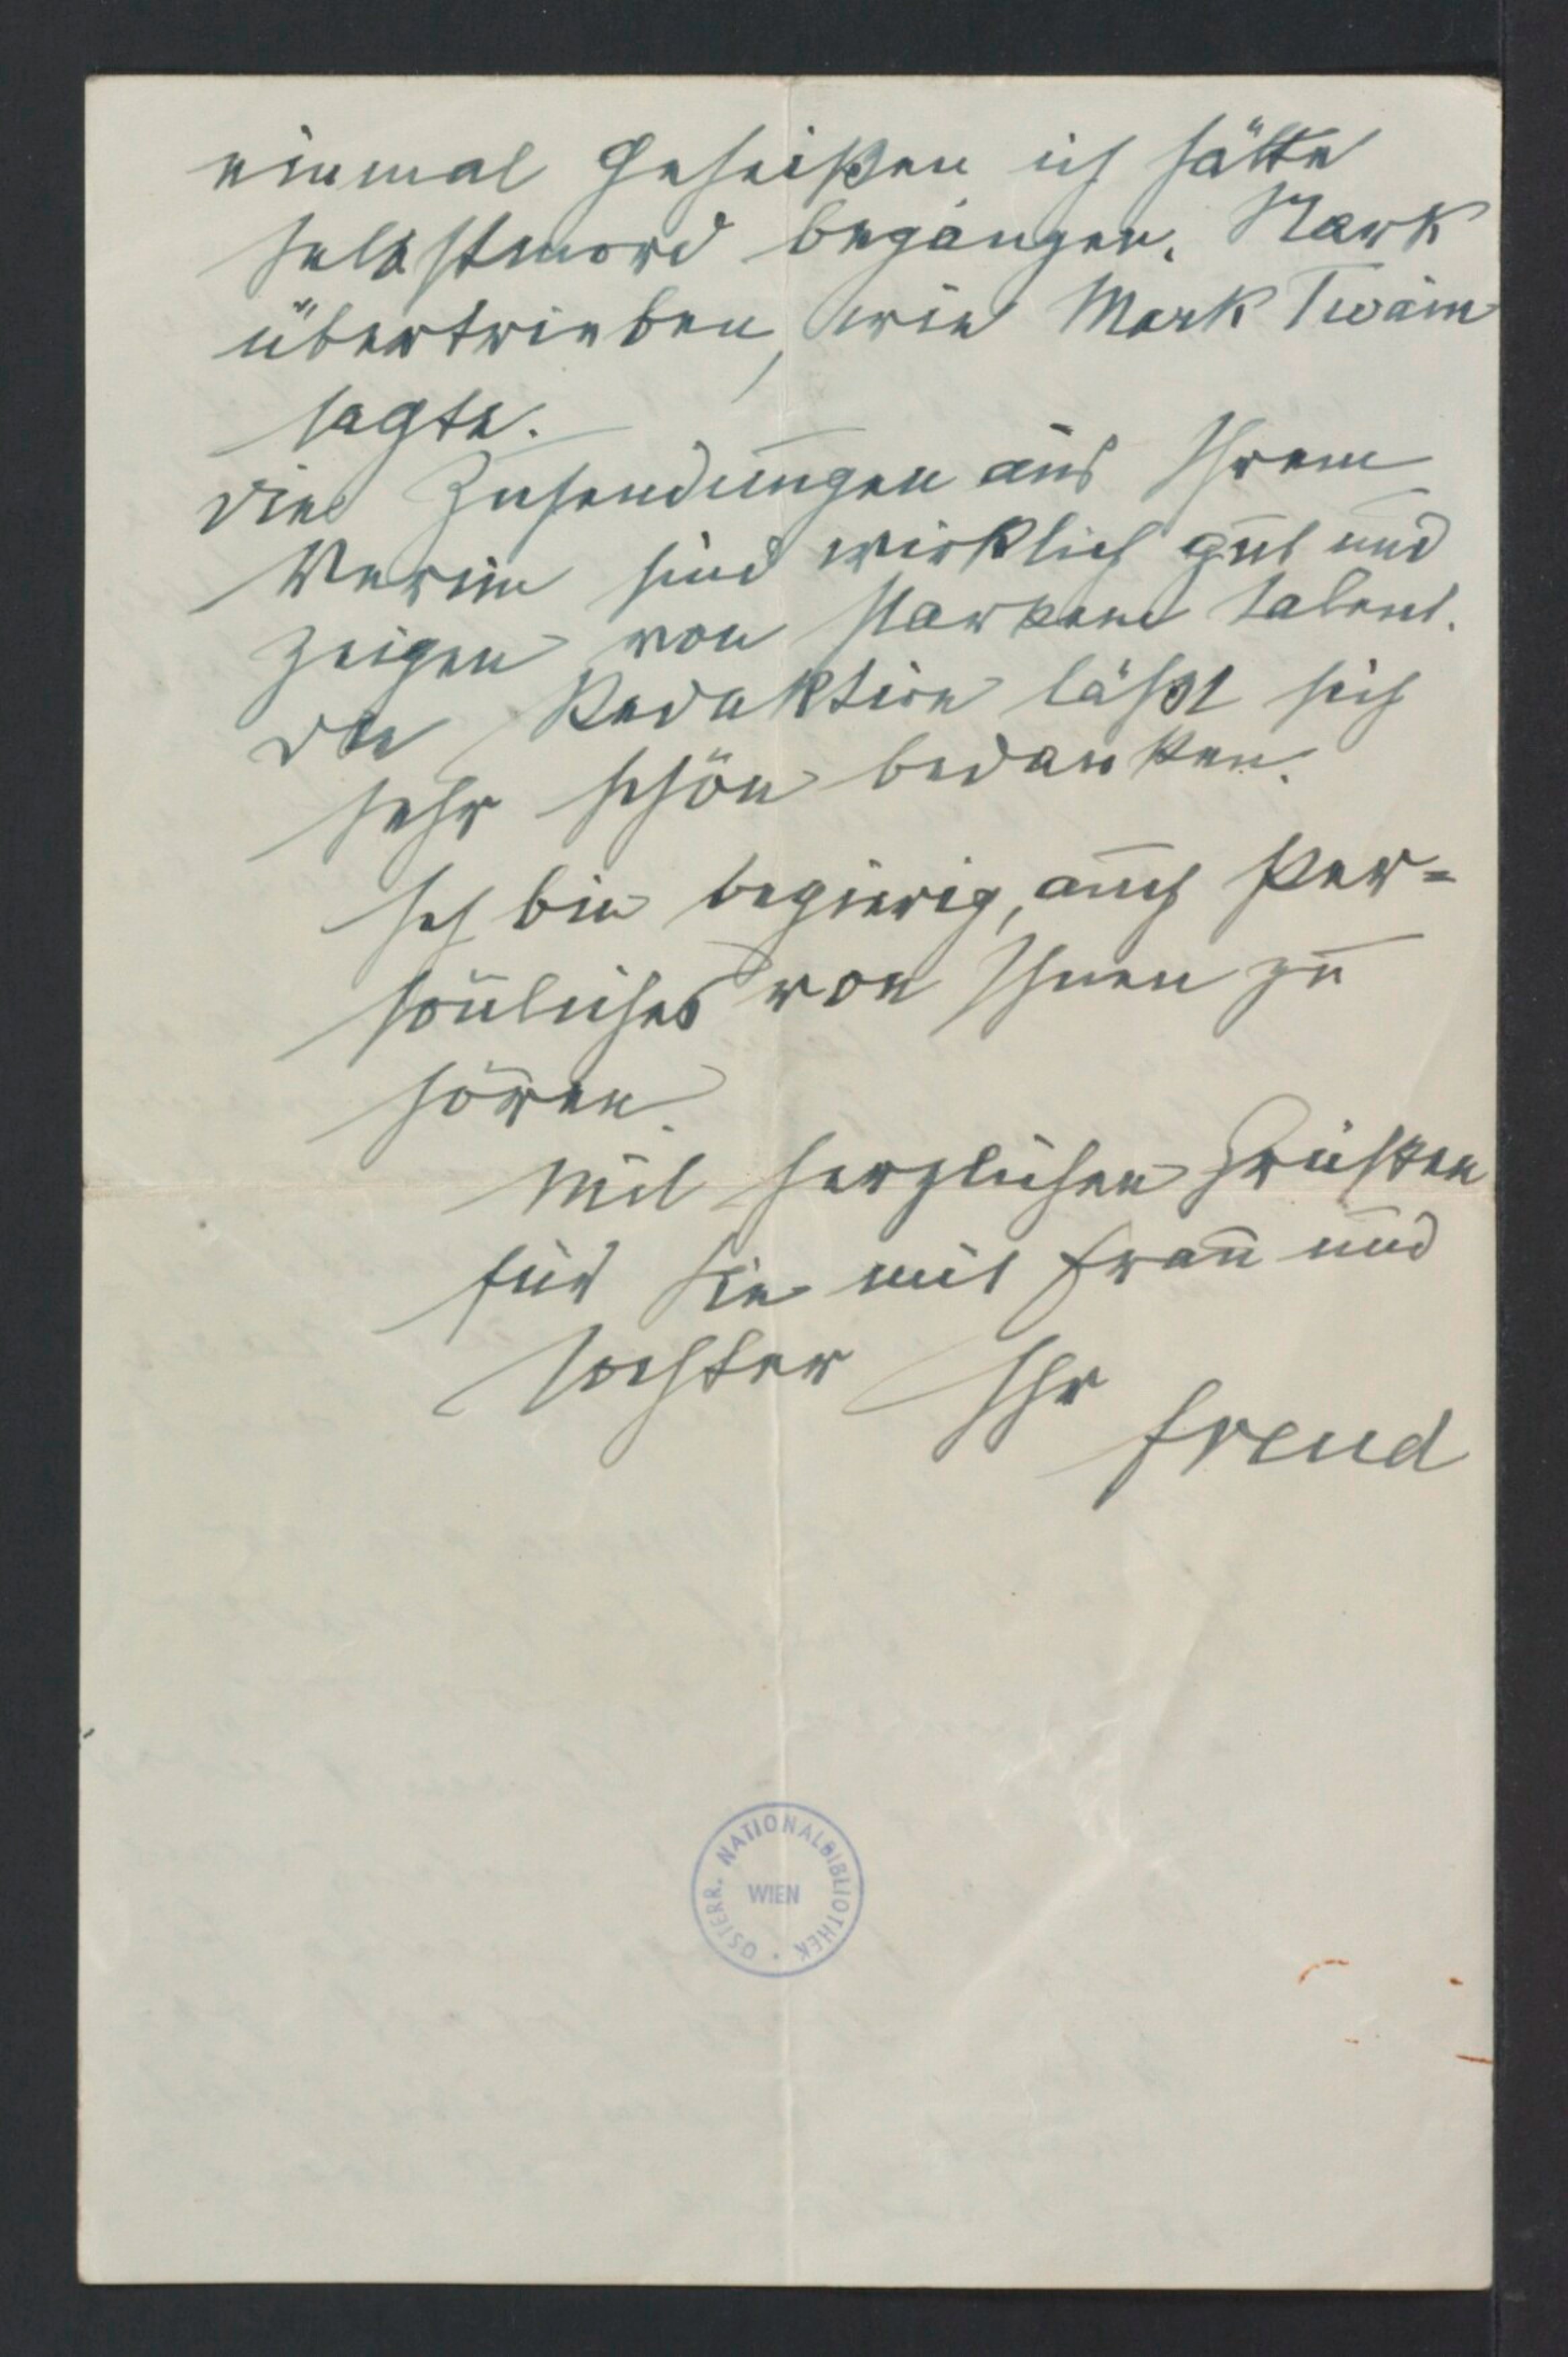 einmal geheißen ich hätte
Selbstmord begangen. Stark
übertrieben, wie Mark Twain
sagte.
Die Zusendungen aus Ihrem
Verein sind wirklich gut und
zeigen von starkem Talent.
Die Redaktion läßt sich
sehr schön bedanken.
Ich bin begierig, auch Per=
sönliches von Ihnen zu
hören.
Mit herzlichen Grüßen
für Sie mit Frau und
Tochter Ihr
Freud
ÖSTERR. NATIONALBIBLIOTHEK
WIEN